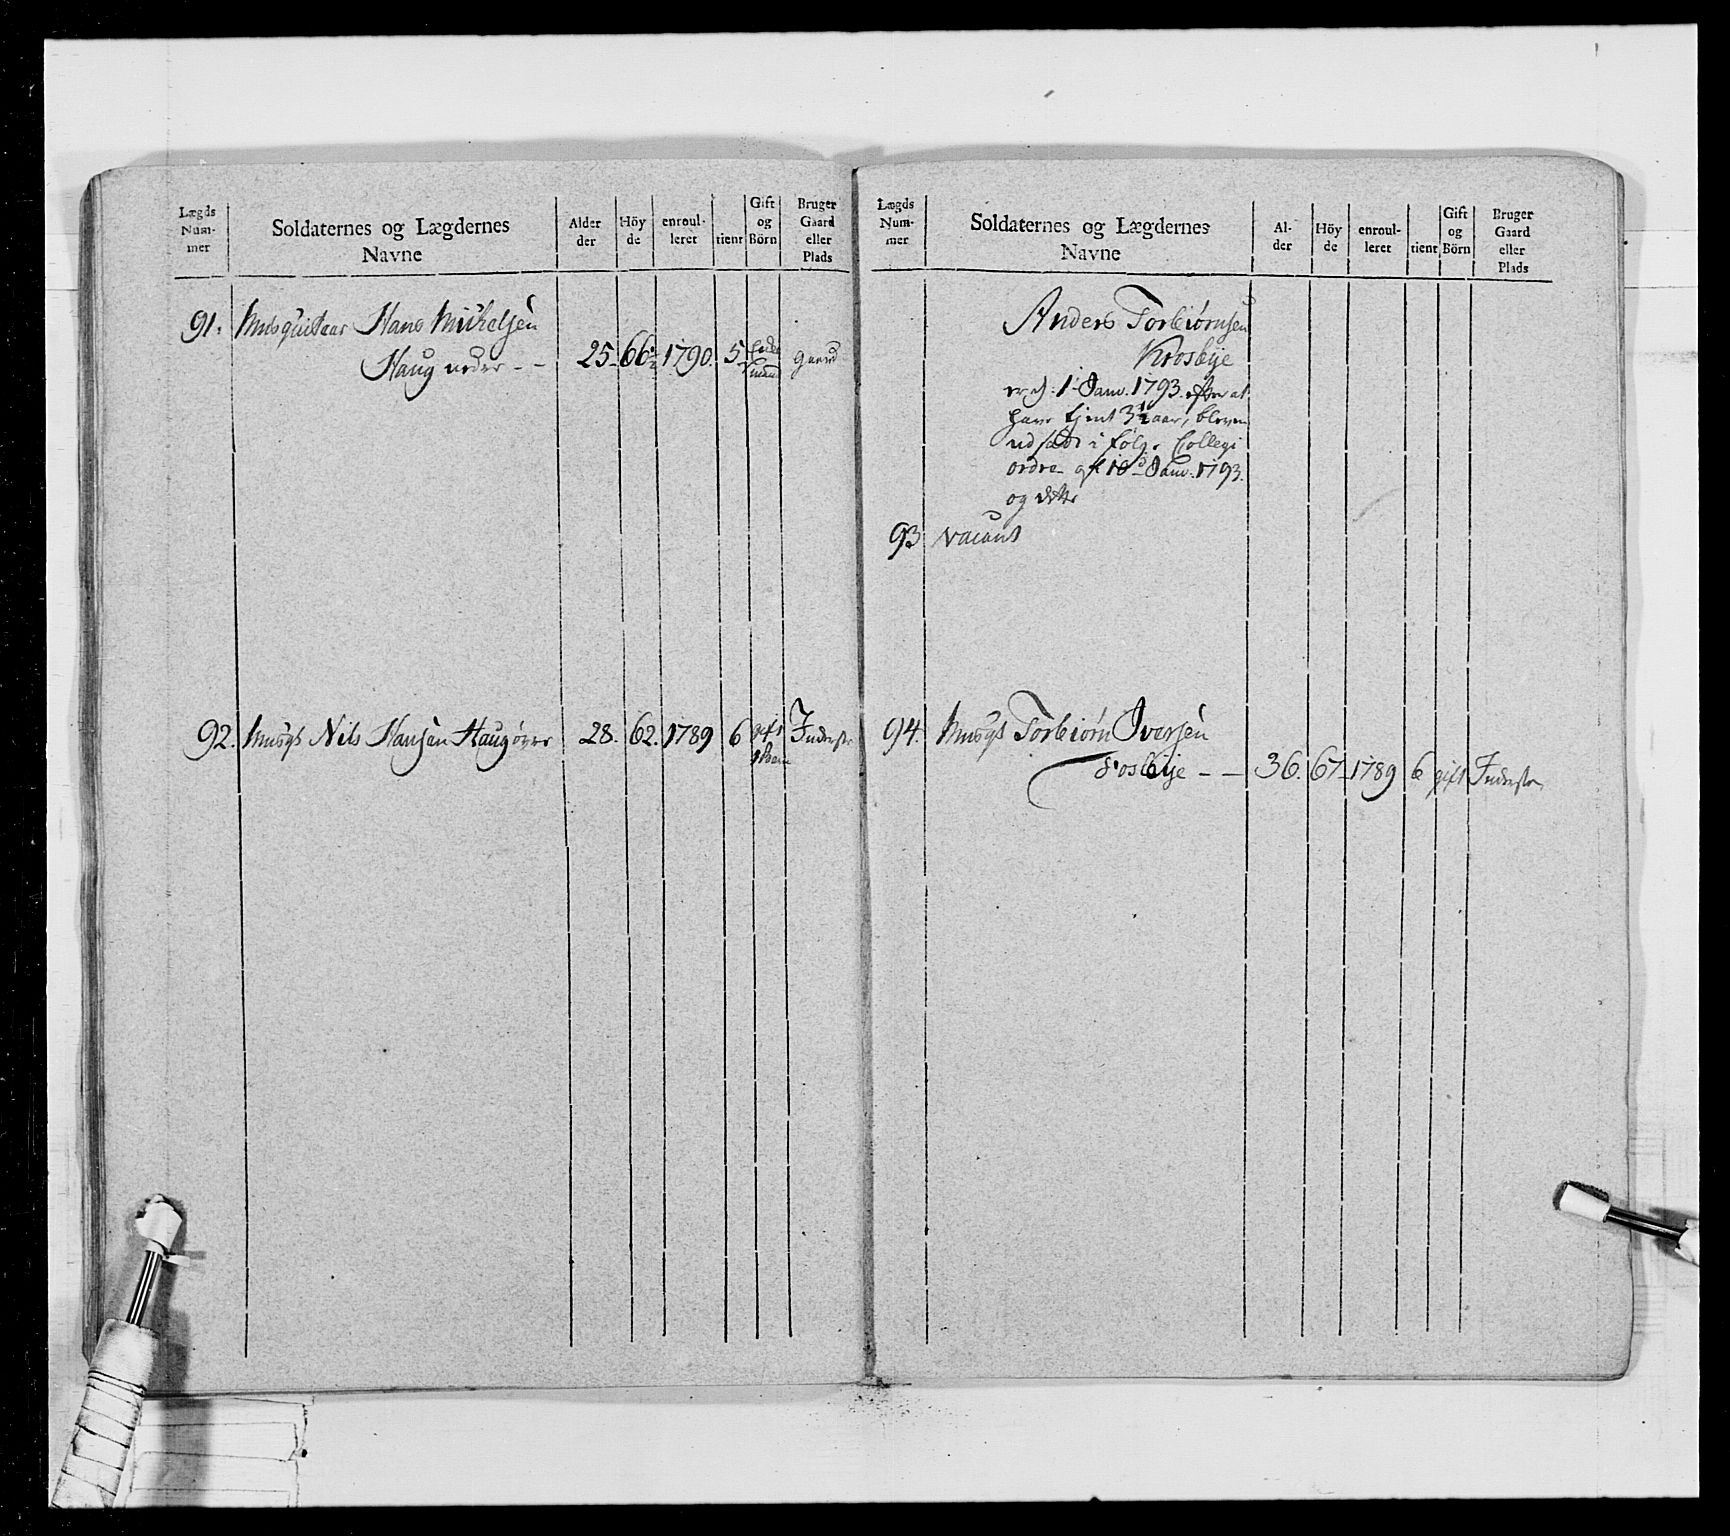 Lægds Num- mer | Soldaternes og Lægdernes Navne | Alder der | Höy de | enroul- leret | tient | Gift og Börn | Bruger Gaard eller Plads
91. Musquitaar Hans Mickelsen
Haug nedre - - 25. 66½ 1790. 5 mand gaard
92. Musqt Nils Hansen Haug øvre 28. 62. 1789 6 gift Inderste
1 Barn
Lægds Num- mer | Soldaternes og Lægdernes Navne | Al- der | Höy de | enroul- leret | tient | Gift og Börn | Bruger Gaard eller Plads
Anders Torbiørnsen
Krosbye
er d: 1 Janv. 1793. efter at
have tient 3½ aar, bleven
udsadt i følge Collegi
ordre af 18d Janv. 1793.
og dette
93 vacant
94. Musqt Torbiørn Iversen
Fosbye - - 36. 67 1789 6 gift Inderste